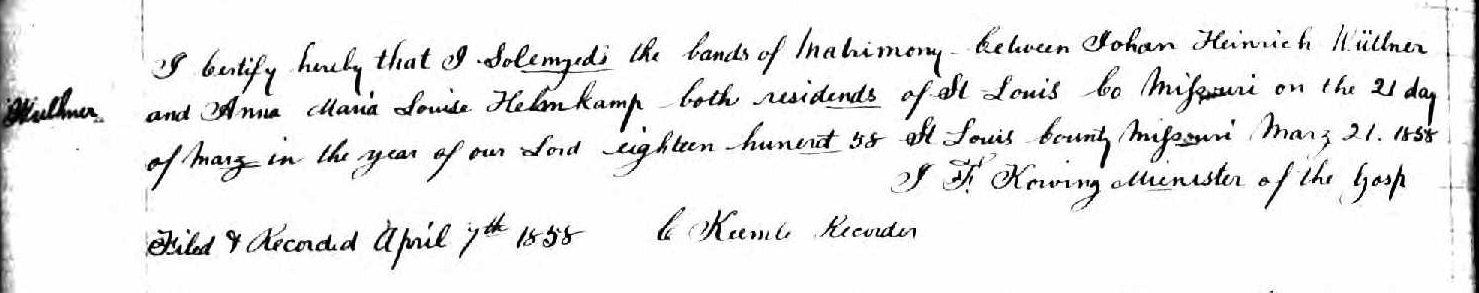 I Certify hereby that I Solemzeds the bands of Matrimony between Johan Heinrich Wüllner
Wullner
and Anna Maria Louise Helmkamp both residends of St Louis Co Missouri on the 21 day
of Marz in the year of our Lord eighteen hunert 58 St Louis County Missouri Marz 21. 1858
J F. Kowing Minister of the Gosp
Filed & Recorded April 7th 1858 C Keemle Recorder